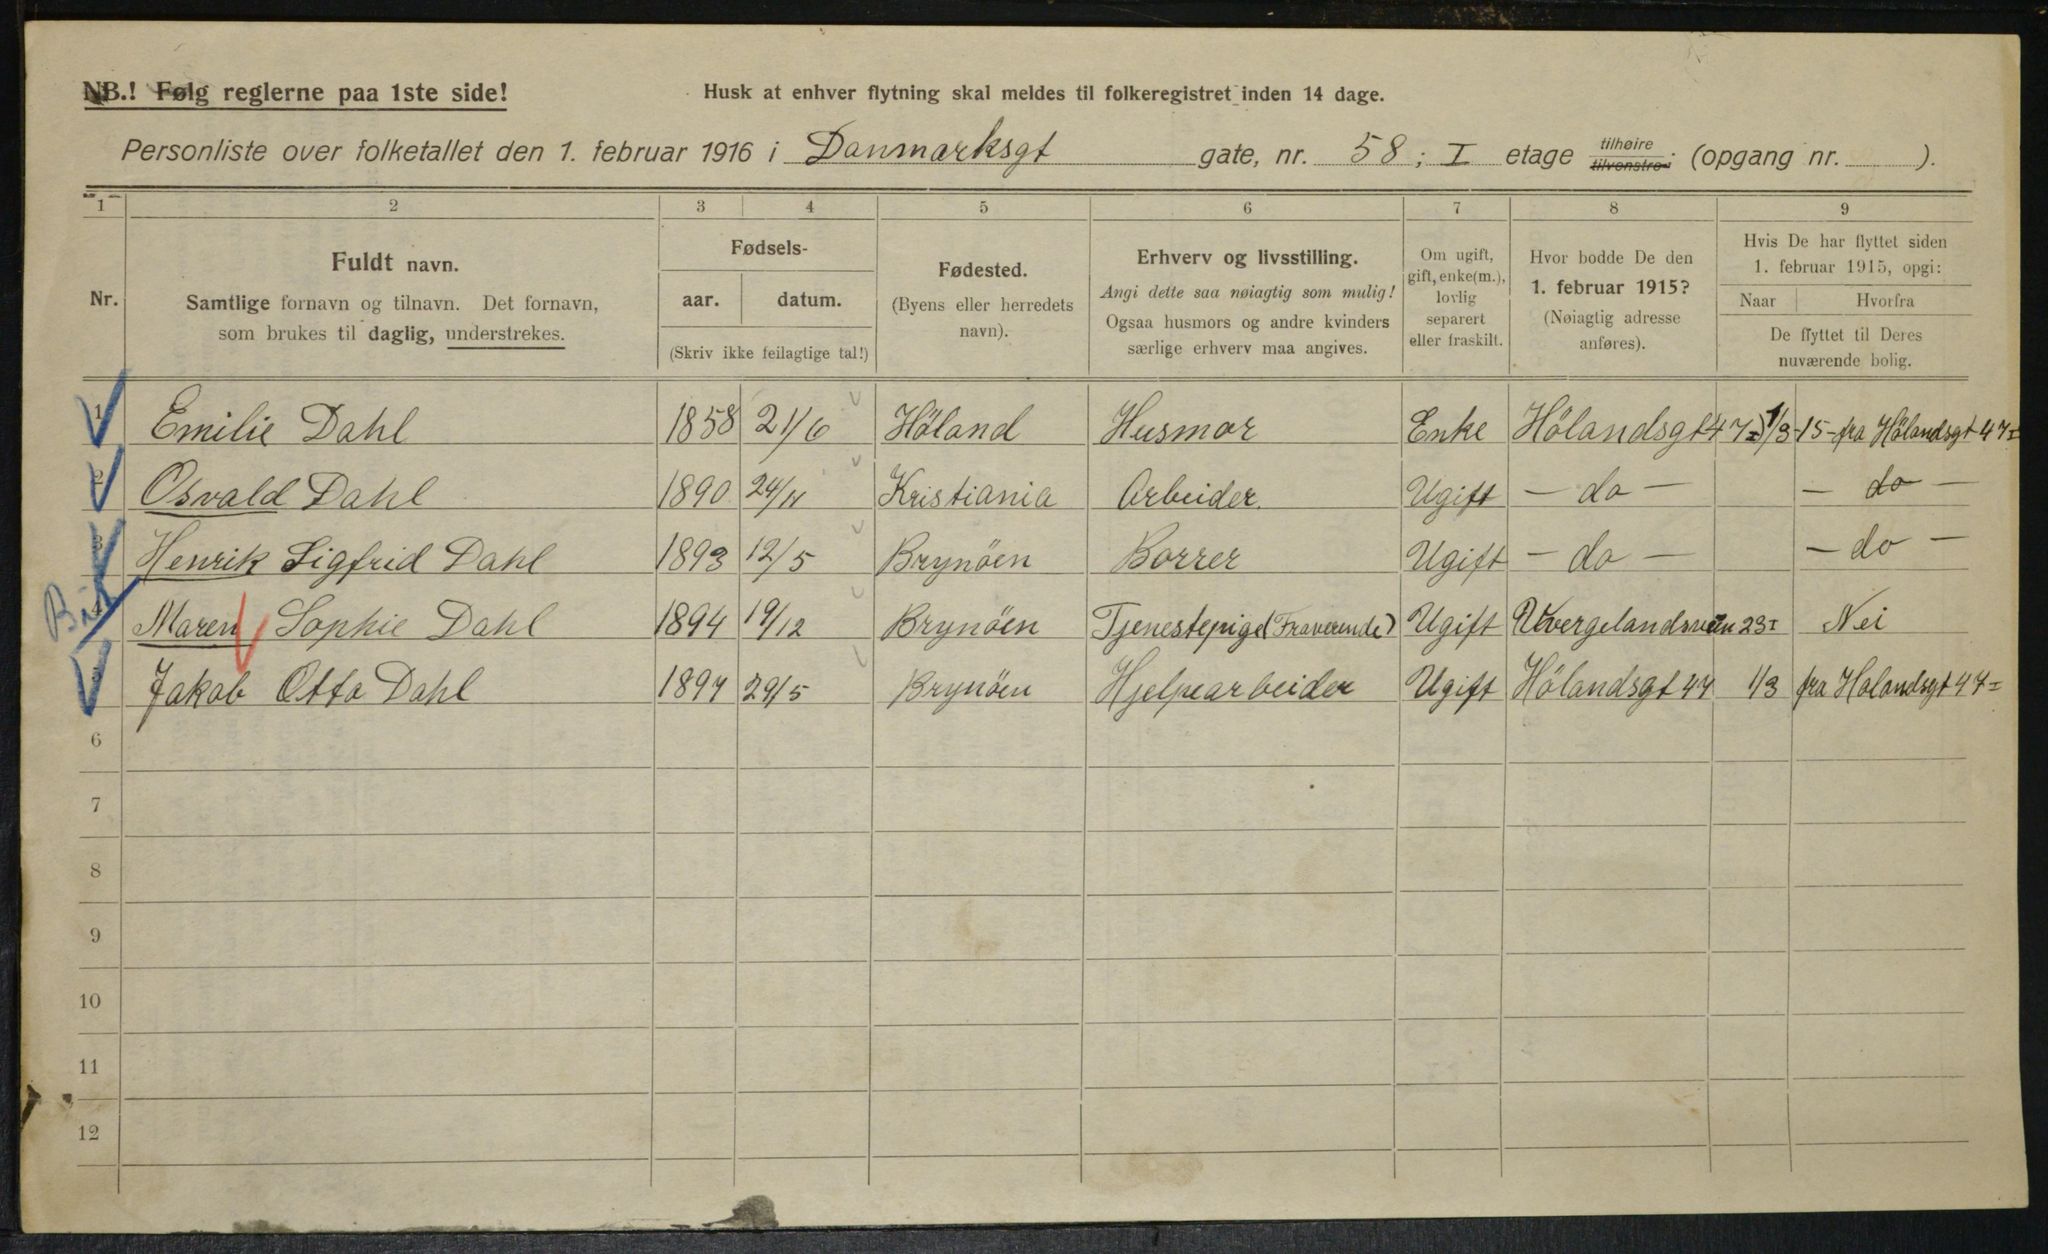 NB.! Følg reglerne paa 1ste side!
Husk at enhver flytning skal meldes til folkeregistret inden 14 dage.
Personliste over folketallet den 1. februar 1916 i Danmarksgt gate, nr. 58; I etage tilhøire tilvenstre; (opgang nr. ).
1 2 3 4 5 6 7 8 9
Nr.
Fuldt navn.
Samtlige fornavn og tilnavn. Det fornavn,
som brukes til daglig, understrekes.
Fødsels-
aar. datum.
(Skriv ikke feilagtige tal!)
Fødested.
(Byens eller herredets
navn).
Erhverv og livsstilling.
Angi dette saa nøiagtig som mulig!
Ogsaa husmors og andre kvinders
særlige erhverv maa angives.
Om ugift,
gift, enke(m.),
lovlig
separert
eller fraskilt.
Hvor bodde De den
1. februar 1915?
(Nøiagtig adresse
anføres).
Hvis De har flyttet siden
1. februar 1915, opgi:
Naar Hvorfra
De flyttet til Deres
nuværende bolig.
1 Emilie Dahl 1858 21/6 Höland Husmor Enke Hölandsgt 47 I 1/3-15- fra Hölandsgt 47 I
2 Osvald Dahl 1890 24/11 Kristiania Arbeider. Ugift - do - - do -
3 Henrik Sigfrid Dahl 1893 12/5 Brynöen Borrer Ugift - do - - do -
4 Maren Sophie Dahl 1894 19/12 Brynöen Tjenestepige (Fraverende) Ugift 23 I Nei
5 Jakob Otto Dahl 1897 29/5 Brynöen Hjelpearbeider Ugift Hölandsgt 47 1/3 fra Holandsgt 47 I
6
7
8
9
10
11
12